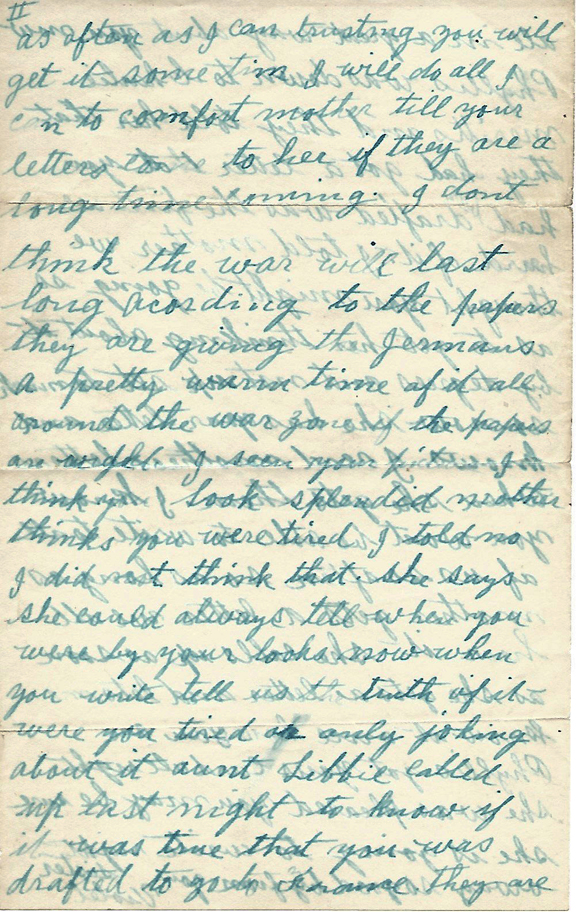 II
as often as I can trusting you will
get it some tim I will do all I
c n to comfort mother till your
letters to her if they are a
long time coming. I dont
think the war will last
long acosding to the papers
they are giving the Jermans
a pretty warm time of it all
around the war zone if the papers
an I seen your I
think you look splended mother
thinks you were tired I told no
I did not think that. she says
she could always tell when you
were by your looks now when
you write tell us th truth of it
were you tired or only joking
about it aunt Libbie called
up last night to know if
it was true that you was
drafted to go to France. they are